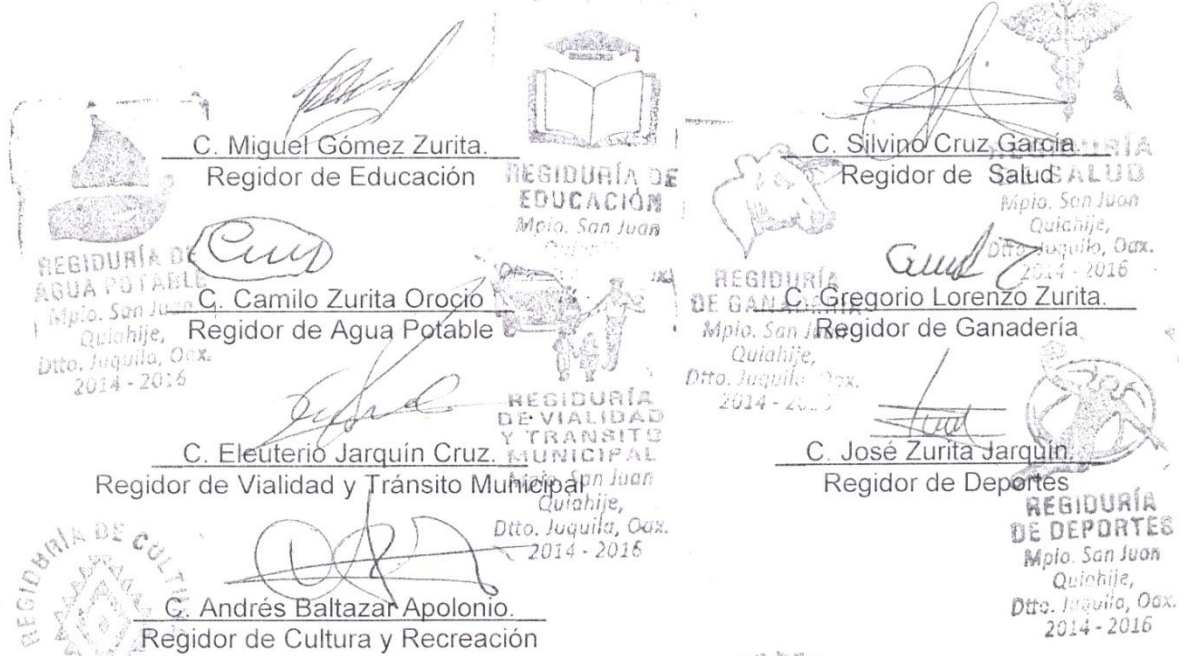 C. Miguel Gómez Zurita.
Regidor de Educación
REGIDURÍA DE
EDUCACIÓN
Mpio. San Juan
C. Silvino Cruz García.
Regidor de Salud
SALUD
Mpio. San Juan
Quiahije,
Dtto. Juquila, Oax.
2014 - 2016
REGIDURÍA DE
AGUA POTABLE
Mpio. San Juan
Quiahije,
Dtto. Juquila, Oax.
2014 - 2016
C. Camilo Zurita Orocio
Regidor de Agua Potable
REGIDURÍA
DE GANADERÍA
Mpio. San Juan
Quiahije,
Dtto. Juquila, Oax.
2014 -
C. Gregorio Lorenzo Zurita.
Regidor de Ganadería
C. Eleuterio Jarquín Cruz.
Regidor de Vialidad y Tránsito Municipal
REGIDURÍA
DE VIALIDAD
Y TRANSITO
MUNICIPAL
Mpio. San Juan
Quiahije,
Dtto. Juquila, Oax.
2014 - 2016
C. José Zurita Jarquín.
Regidor de Deportes
REGIDURÍA
DE DEPORTES
Mpio. San Juan
Quiahije,
Dtto. Juquila, Oax.
2014 - 2016
REGIDURÍA DE
C. Andrés Baltazar Apolonio.
Regidor de Cultura y Recreación